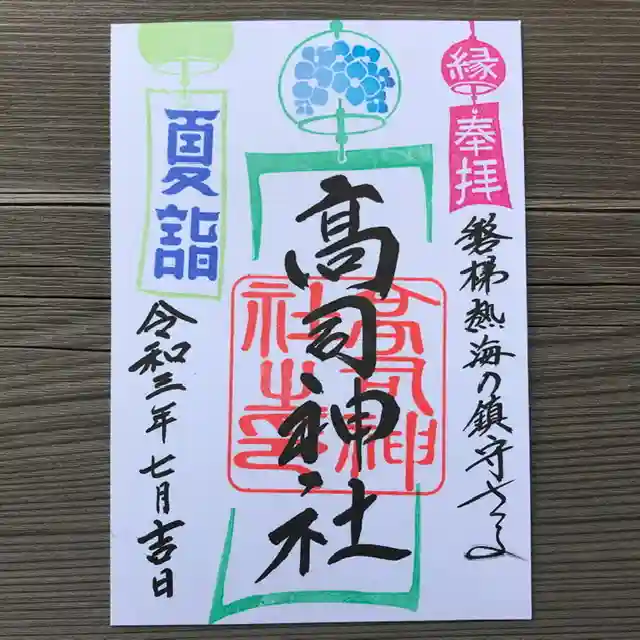 縁
奉拝
磐梯熱海の鎮守さま
髙司神社
髙司神
社之印
夏詣
令和三年七月吉日